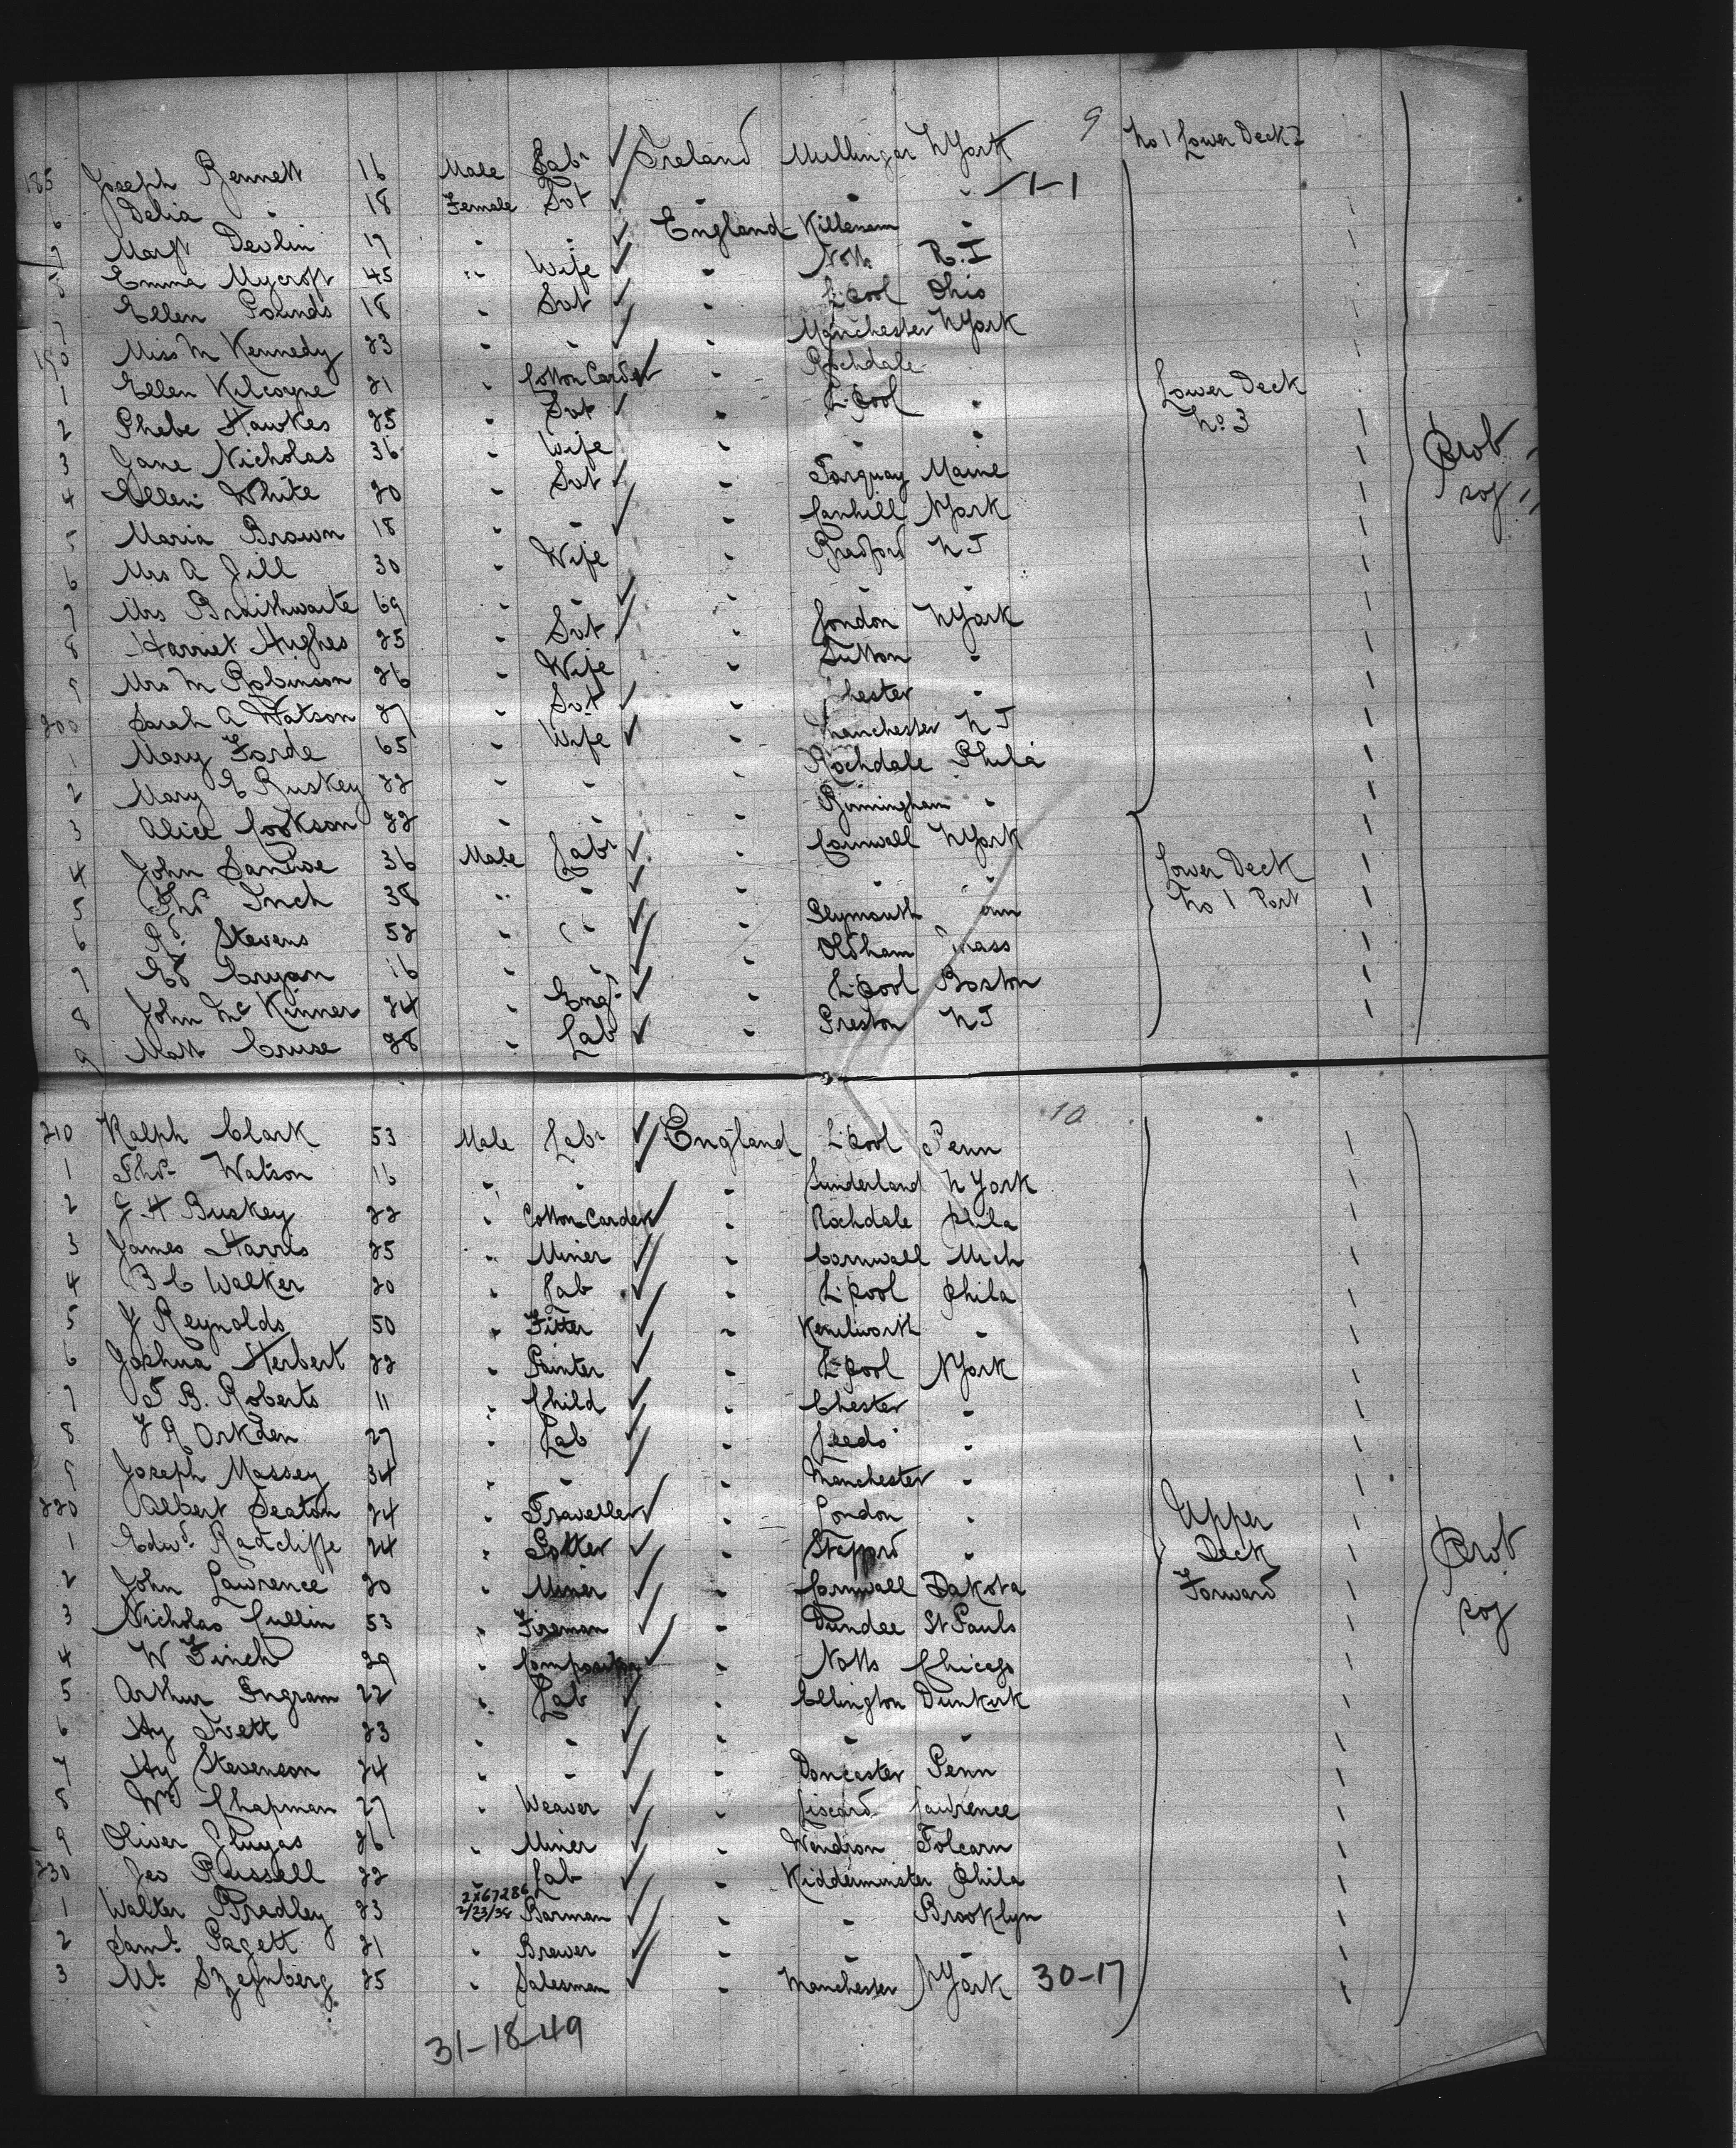 9
185 Joseph Bennett 16 Male Labr Ireland Mullingar NYork No 1 Lower Deck
6 Delia " 18 Female Svt " " " 1-1
7 Margt Devlin 17 " " England "
8 Emma Mycroft 45 " Wife " Notts R.I
9 Ellen Pounds 18 " Svt " L'pool Ohio
190 Miss M Kennedy 23 " " " Manchester NYork
1 Ellen Kilcoyne 21 " Cotton Carder " Rochdale
2 Phebe Hawkes 25 " Svt " L'pool " Lower Deck
3 Jane Nicholas 36 " Wife " " " No 3
4 Ellen White 20 " Svt " Torquay Maine Prot
5 Maria Brown 18 " " " NYork soj
6 Mrs A Jill 30 " Wife " Bradford N J
7 Mrs Braithwaite 69 " " " " "
8 Harriet Hughes 25 " Svt " London NYork
9 Mrs M Robinson 26 " Wife " Sutton "
200 Sarah A Watson 27 " Svt " Chester "
1 Mary Forde 65 " Wife " Manchester N J
2 Mary E Buskey 22 " " " Rochdale Phila
3 Alice Cookson 22 " " " Birmingham "
4 John 36 Male Labr " Cornwall NYork Lower Deck
5 Thos Inch 38 " " " " " No 1 Port
6 Rd Stevens 52 " " " Plymouth
7 Ed Cryan 16 " " " Oldham Mass
8 John McKinner 24 " Engr " L'pool Boston
9 Matt Cruse 28 " Lab " Preston N J
10
210 Ralph Clark 53 Male Labr England L'pool Penn
1 Thos Watson 16 " " " Sunderland N York
2 J H Buskey 22 " Cotton Carder " Rochdale Phila
3 James Harris 25 " Miner " Cornwall Mich
4 B C Walker 20 " Lab " L'pool Phila
5 J Reynolds 50 " Fitter " Kenilworth "
6 Joshua Herbert 22 " Painter " L'pool NYork
7 T B. Roberts 11 " Child " Chester "
8 J R Orkden 27 " Lab " Leeds "
9 Joseph Massey 34 " " " Manchester "
220 Albert Seaton 24 " Traveller " London " Upper
1 Edwd Radcliffe 24 " Potter " Stafford " Deck Prot
2 John Lawrence 20 " Miner " Cornwall Dakota Forward
3 Nicholas Cullin 53 " Fireman " Dundee St Pauls soj
4 W Finch 29 " Compositor " Notts Chicago
5 Arthur Ingram 22 " Lab " Ellington Dunkirk
6 Hy Trett 23 " " " " "
7 Hy Stevenson 24 " " " Doncaster Penn
8 Wm Chapman 27 " Weaver " Liscard Lawrence
9 Oliver Eluyas 26 " Miner " Wendron Folcarn
230 Geo Russell 22 " Lab " Kidderminster Phila
1 Walter Bradley 23 2x67286 2/23/38 Barman " " Brooklyn
2 Saml Pagett 21 " Brewer " " "
3 25 " Salesman " Manchester NYork 30-17
31-18-49